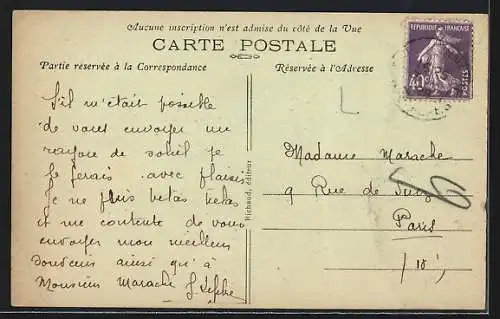 Aucune inscription n'est admise du côté de la Vue
CARTE POSTALE
Partie réservée à la Correspondance
Réservée à l'Adresse
REPUBLIQUE FRANÇAISE
40c
POSTES
S'il m'était possible
de vous envoyer un
rayon de soleil je
le ferais avec plaisir
Je ne puis hélas hélas
et me contente de vous
envoyer mon meilleur
souvenir ainsi qu'à
Monsieur Marache
Richaud, éditeur
Madame Marache
9 Rue de
Paris